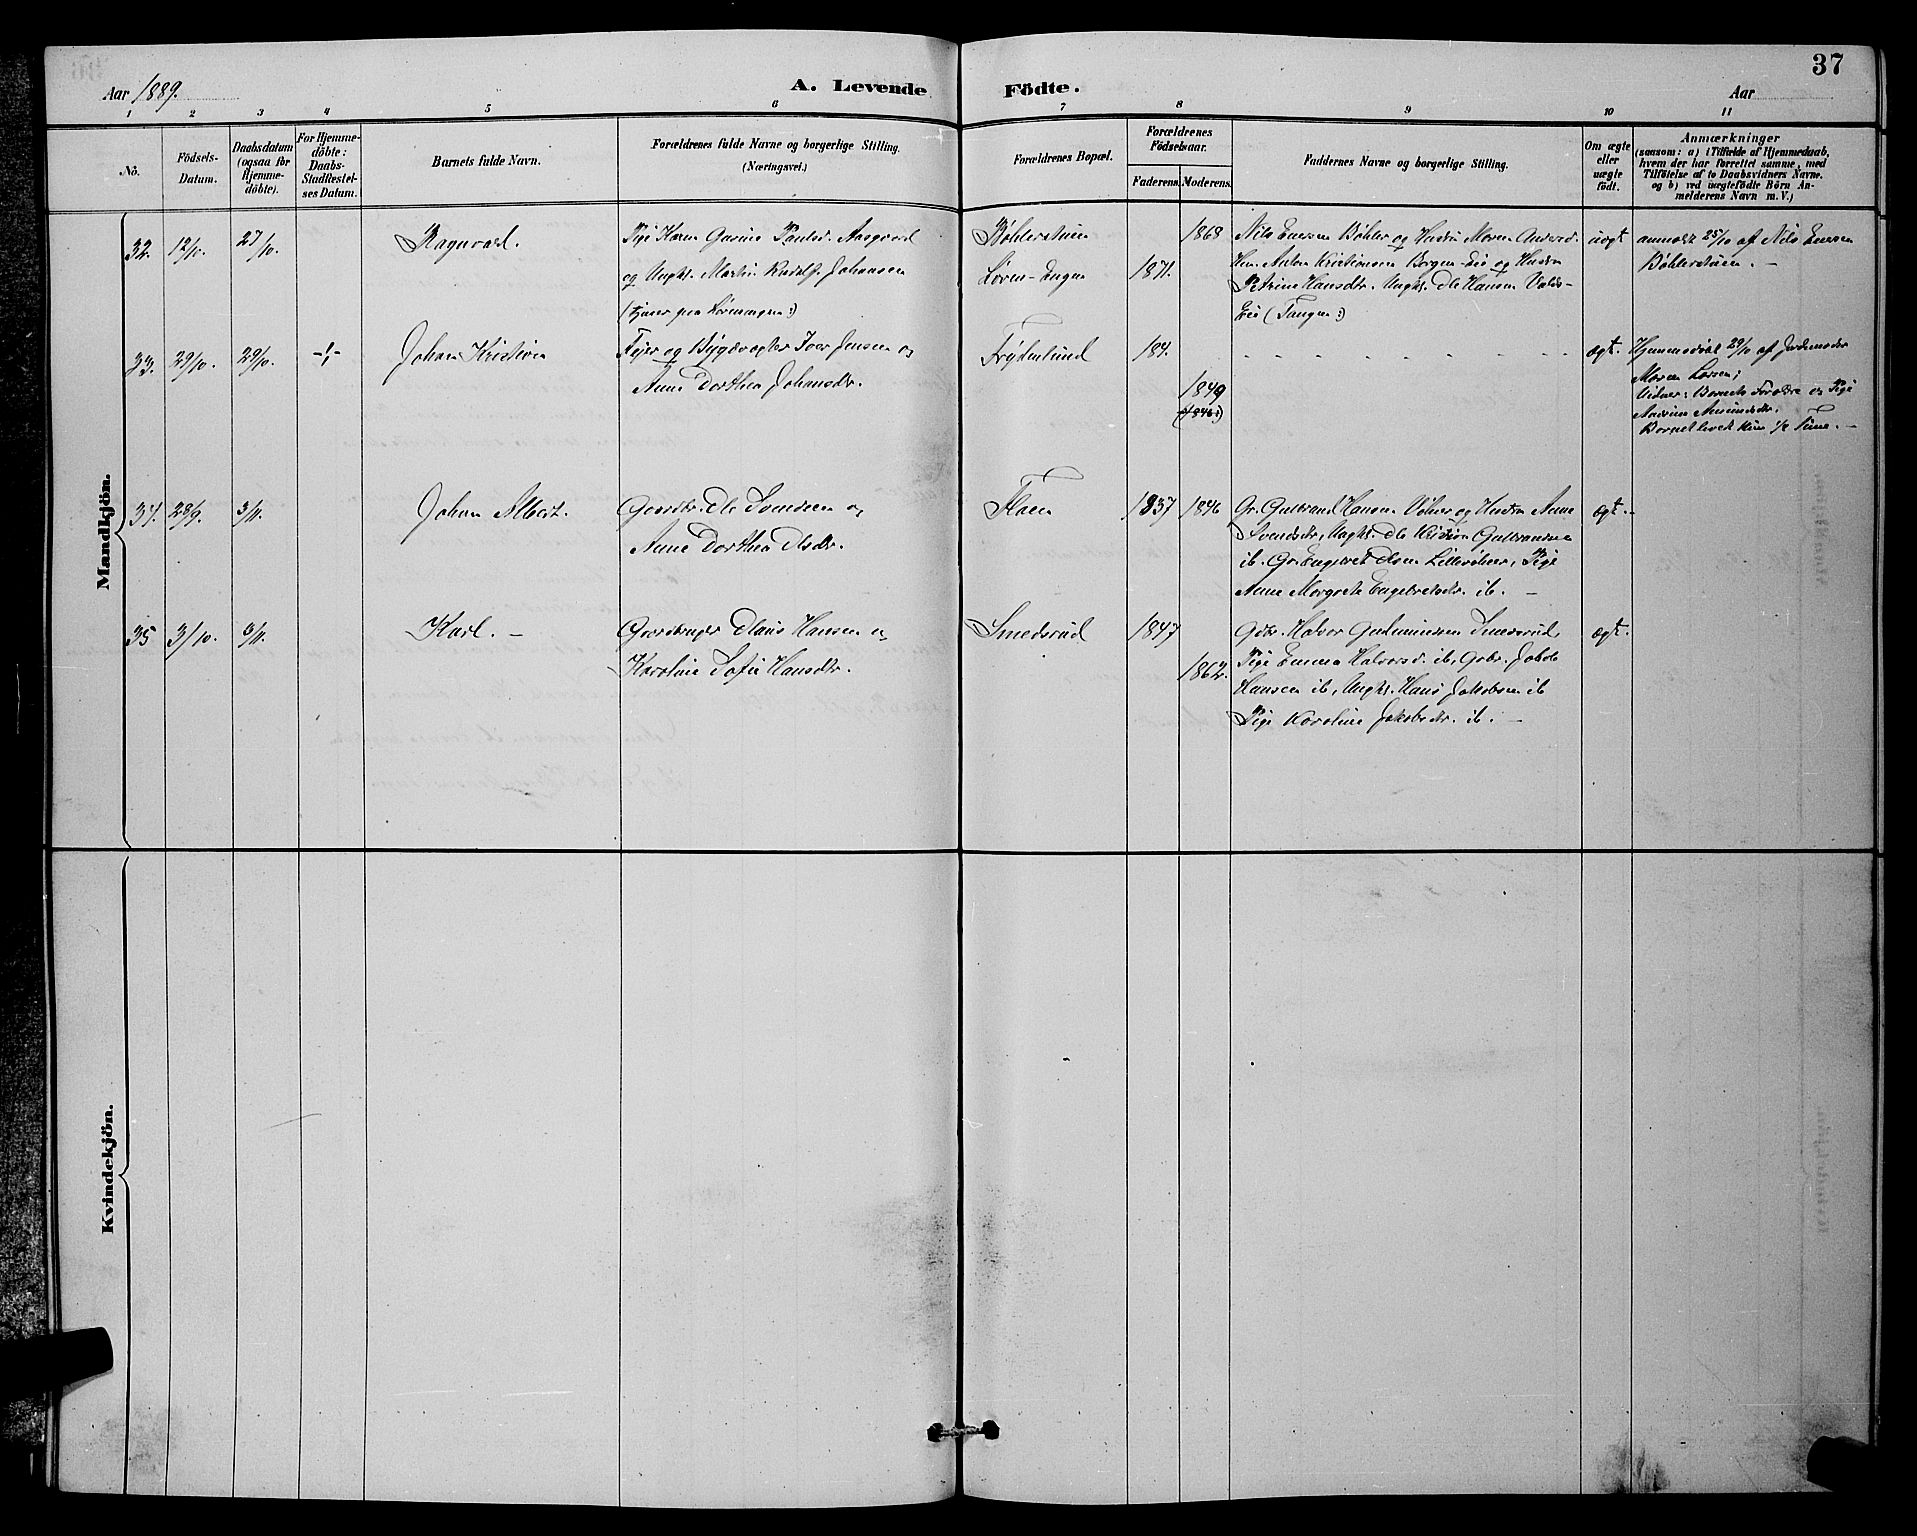 37
Aar 1889.
A. Levende Födte.
Aar
1 2 3 4 5 6 7 8 9 10 11
No.
Födsels-
Datum.
Daabsdatum
(ogsaa for
Hjemme-
döbte).
For Hjemme-
döbte:
Daabs-
Stadfæstel-
ses Datum.
Barnets fulde Navn.
Forældrenes fulde Navne og borgerlige Stilling.
(Næringsvei.)
Forældrenes Bopæl.
Forældrenes
Födselsaar.
Faderens. Moderens.
Faddernes Navne og borgerlige Stilling.
Om ægte
eller
uægte
født.
Anmærkninger
(saasom: a) i Tilfælde af Hjemmedaab,
hvem der har forrettet samme, med
Tilföielse af to Daabsvidners Navne.
og b) ved uægtefödte Börn An-
melderens Navn m. V.)
Mandkjön.
32. 12/10. 27/10. Ragnvard.
Pige Karen Gusine Paulsd. Aasgaard
og Ungk. Martin Rudolf Johansen
(tjener paa Lørenengen:)
Bøhlerstuen
Løren-Engen
1868
1871.
Nils Enersen Bøhler og Hustru Maren Andersd.
Hm. Anton Kristiansen Borgen-Eie og Hustru
Petrine Hansdtr. Ungk. Ole Hansen Volds-
Eie (Tangen:)
uægt
anmeldt 25/10 af Nils Enersen
Bøhlerstuen. —
33. 29/10. 29/10. -!- Johan Kristian
Feier og Bygdevægter Iver Jensen og
Anne Dorthea Johansdtr.
Frydenlund
184.
1849
(1846:)
ægt.
Hjemmedøbt 29/10 af Jordemoder
Maren Larsen;
Vidner: Barnets Forældre og Pige
Andrine Amundsdtr.
Barnet levede kun 1/2 Time. —
34. 28/9. 3/11. Johan Albert.
Gaardbr. Ole Svendsen og
Anne Dorthea Olsdtr.
Floen
1837 1846
Gr. Gulbrand Hansen Vølner og Hustru Anne
Svendsdtr, Ungk. Ole Kristian Gulbrandsen
ib. Gr. Engebret Olsen Lillevølner, Pige
Anne Margrete Engebretsdtr. ib. —
ægt.
35 3/10. 3/11. Karl. —
Gaardbruger Olaus Hansen og
Karoline Sofie Hansdtr.
Smedsrud
1847
1862.
Gdbr. Halvor Gudmundsen Smedsrud,
Pige Emma Halvorsd. ib, Gbr. Jakob
Hansen ib, Ungk. Hans Jakobsen ib
Pige Karoline Jakobsdtr. ib. —
ægt.
Kvindekjön.